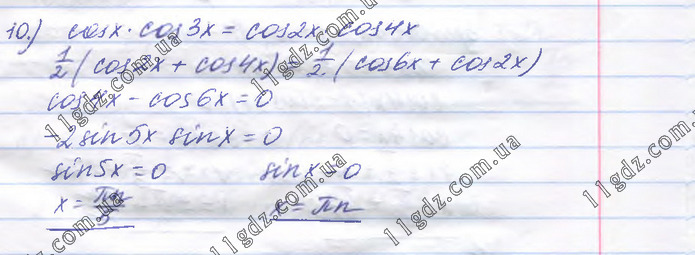 10.) cosx · cos3x = cos2x · cos4x
1/2 (cos2x + cos4x) = 1/2 (cos6x + cos2x)
cos4x - cos6x = 0
-2 sin5x sinx = 0
sin5x = 0 sinx = 0
x = πn/5 x = πn
11gdz.com.ua
11gdz.com.ua
11gdz.com.ua
11gdz.com.ua
11gdz.com.ua
11gdz.com.ua